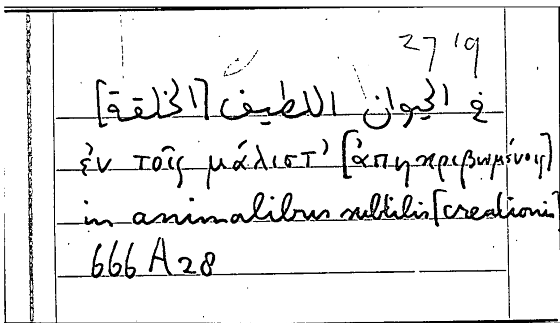 27 19
في الحيوان اللطيف [الخلقة]
ἐν τοῖς μάλιστ' [ἀπηκριβωμένοις]
in animalibus subtilis [creationis]
666 A 28